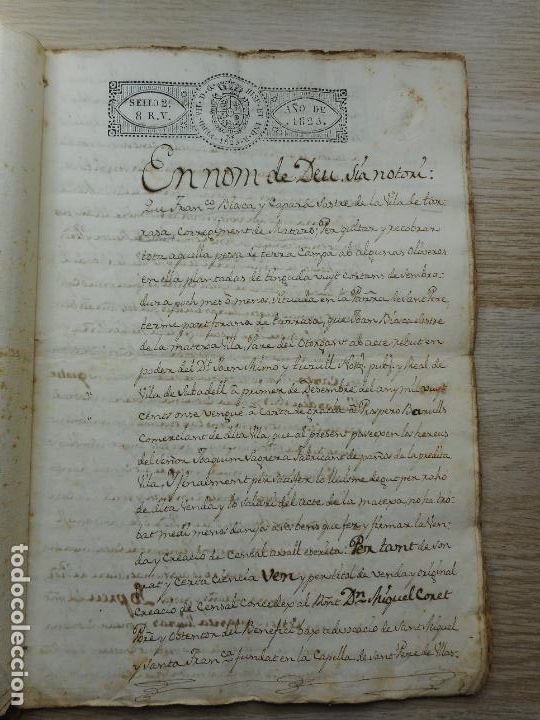 SELLO 2º
8 R.V.
AÑO DE
1825.
En nom de Deu sia notori:
Que Franco Biaca y Sastre de la Vila de tar-
rasa, Corregiment de Mataró; Per quitar y recobrar
tota aquella pessa de terra Campa ab algunas Oliveras
en ella plantadas de tinguda vuyt Cortans de Sembra-
dura poch mes ó menos, situada en la Parra de Sant Pere,
terme part forana de tarrasa, que Joan Biaca Sastre
de la mateixa Vila, Pare del Otorgant ab acte rebut en
poder del Dr. Joan Mimó y Noty. pubh. y Real de
Vila de Sabadell á primer de Desembre del any mil vuyt
Cents onse vengué á Carta de gracia á Prospero Barulls
Comerciant de dita Vila, que al present poseexen los hereus
del Señor Joaquim Sagrera Fabricant de paños de la predita
Vila, Y finalment per satisfer lo lluisme de que per rahó
de dita Venda y lo salari del acte de la mateixa, no ha tro-
bat medi menos dañós á sos bens que fer y firmar la Ven-
da y Creació de Censal avall escrita: Per tant de son
grat y Certa Ciencia Ven y per títol de venda y original
Creació de Censal Concedex al Rnt. Dn. Miquel Conet
Pbre. y obtentor del Benefici baix de Sant Miquel
y Santa Fran.ca fundat en la Capella de Sant Pere de Ullas-
todocoleccion